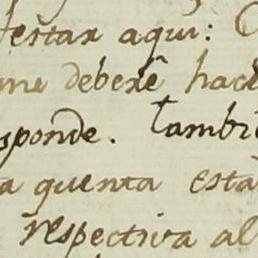 estar aqui:
me deberê hace
sponde. Tambie
a quenta esta
respectiva al